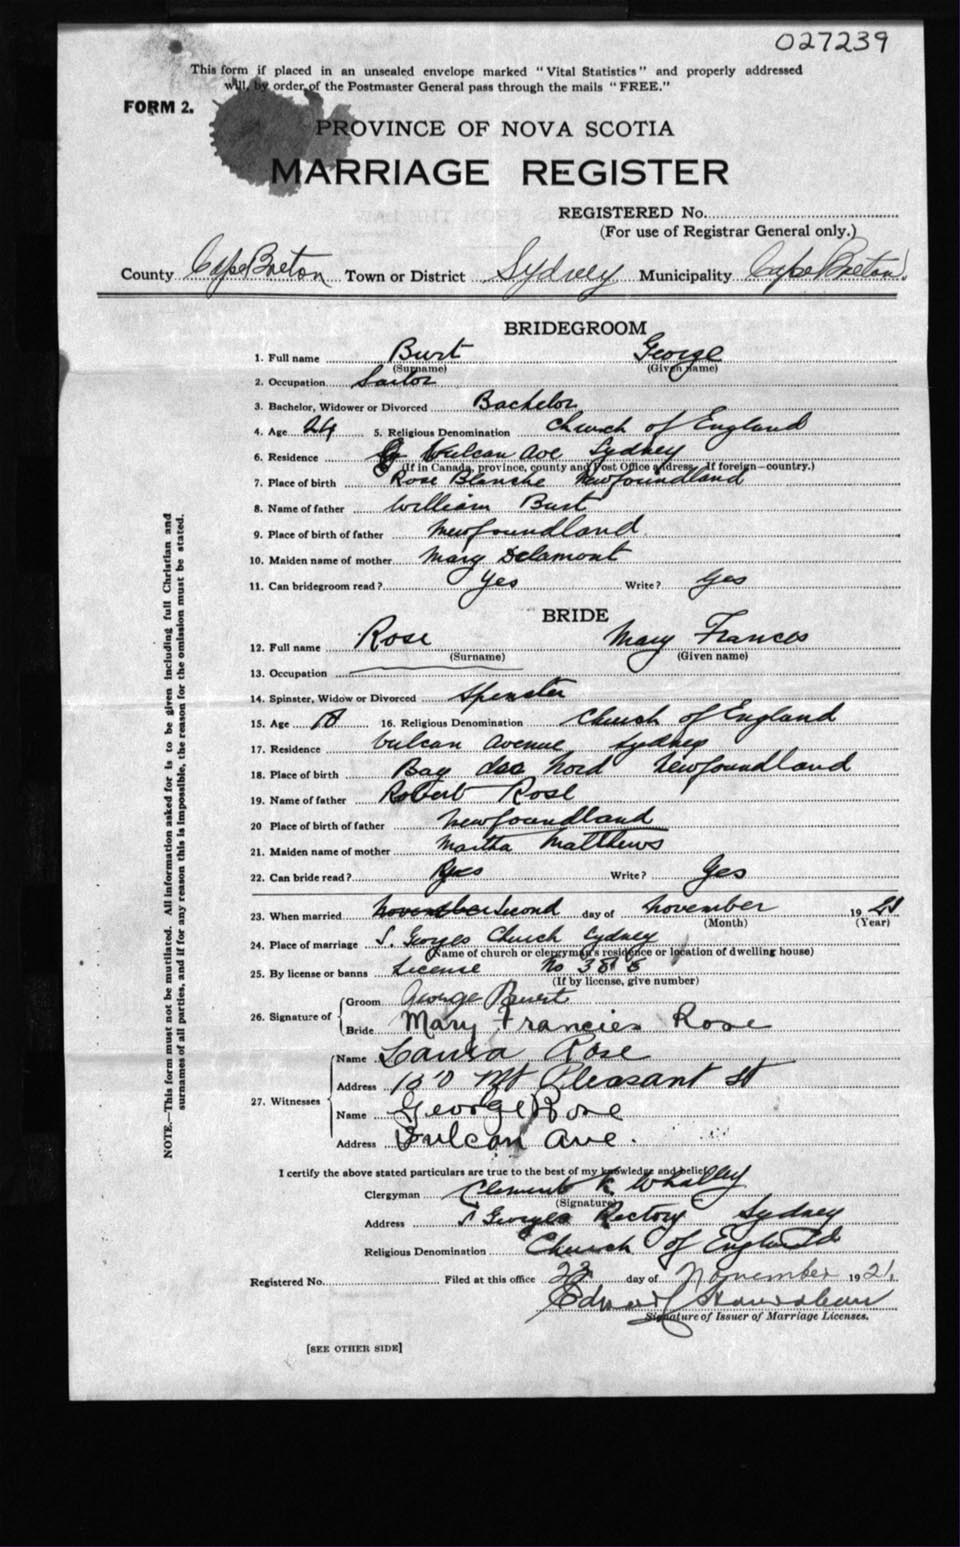 027239
This form if placed in an unsealed envelope marked "Vital Statistics" and properly addressed
will, by order of the Postmaster General pass through the mails "FREE."
FORM 2.
PROVINCE OF NOVA SCOTIA
MARRIAGE REGISTER
REGISTERED No.
(For use of Registrar General only.)
County Cape Breton Town or District Sydney Municipality Cape Breton
BRIDEGROOM
1. Full name Burt George
(Surname) (Given name)
2. Occupation Sailor
3. Bachelor, Widower or Divorced Bachelor
4. Age 24 5. Religious Denomination Church of England
6. Residence Vulcan Ave Sydney
(If in Canada, province, county and Post Office address. If foreign—country.)
7. Place of birth Rose Blanche Newfoundland
8. Name of father William Burt
9. Place of birth of father Newfoundland
10. Maiden name of mother Mary Delamont
11. Can bridegroom read? Yes Write? Yes
BRIDE
12. Full name Rose Mary Frances
(Surname) (Given name)
13. Occupation
14. Spinster, Widow or Divorced Spinster
15. Age 18 16. Religious Denomination Church of England
17. Residence Vulcan Avenue Sydney
18. Place of birth Bay du Nord Newfoundland
19. Name of father Robert Rose
20 Place of birth of father Newfoundland
21. Maiden name of mother Martha Matthews
22. Can bride read? Yes Write? Yes
23. When married Second day of November 1921
(Month) (Year)
24. Place of marriage S. Georges Church Sydney
(Name of church or clergyman's residence or location of dwelling house)
25. By license or banns License No
(If by license, give number)
26. Signature of
Groom George Buert
Bride Mary Francies Rose
27. Witnesses
Name Laura Rose
Address Mt Pleasant St
Name George Rose
Address Vulcan Ave.
I certify the above stated particulars are true to the best of my knowledge and belief.
Clergyman Clement K Whalley
(Signature)
Address S Georges Rectory Sydney
Religious Denomination Church of England
Registered No. Filed at this office 23 day of November 1921.
Edward
Signature of Issuer of Marriage Licenses.
[SEE OTHER SIDE]
NOTE.—This form must not be mutilated. All information asked for is to be given including full Christian and
surnames of all parties, and if for any reason this is impossible, the reason for the omission must be stated.